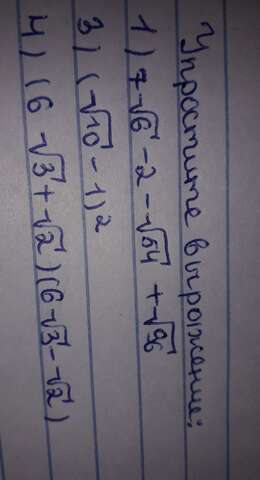 Упростите выражение:
1) 7√6 - 2 - √54 + √96
3) (√10 - 1)²
4) (6√3 + √2)(6√3 - √2)